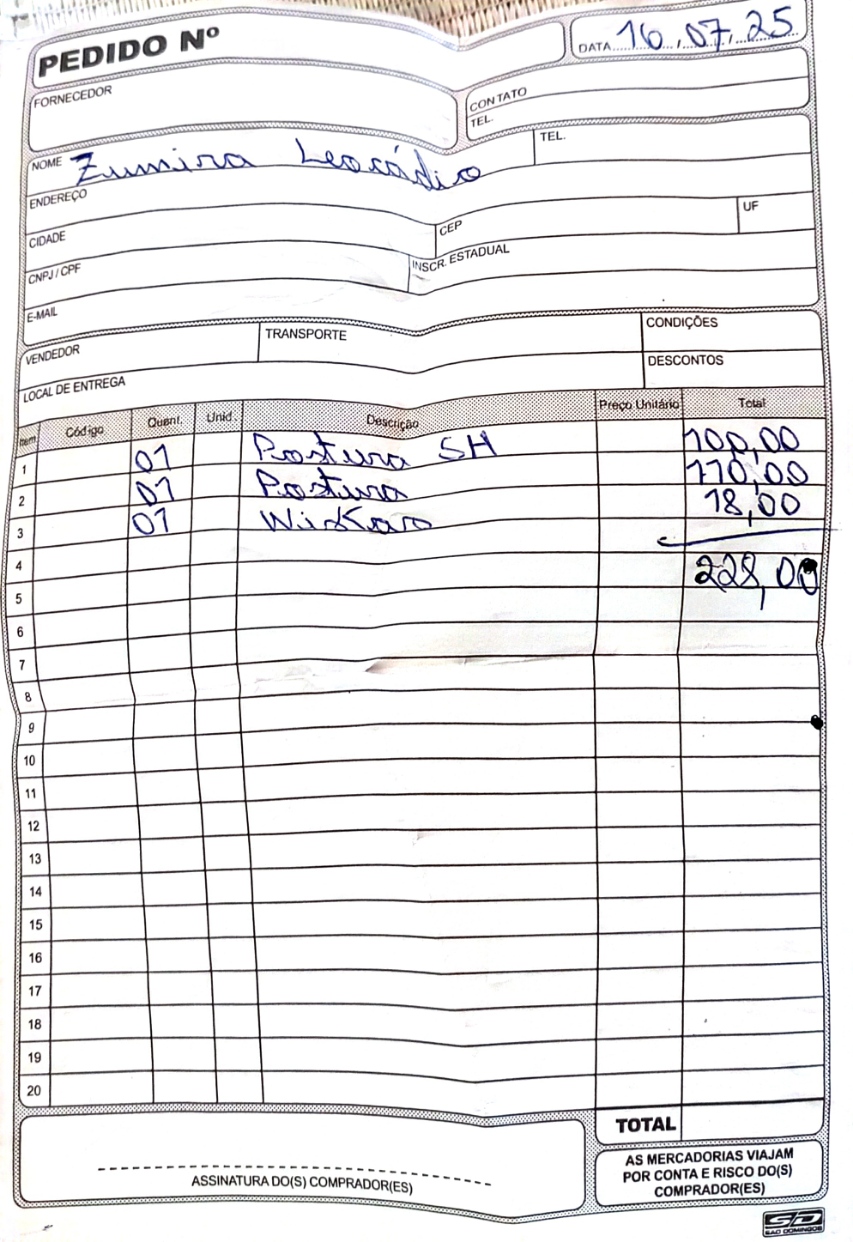 PEDIDO Nº
DATA 16,07,25
FORNECEDOR
CONTATO
TEL.
NOME Zumira Leocádio
TEL.
ENDEREÇO
CIDADE
CEP
UF
CNPJ / CPF
INSCR. ESTADUAL
E-MAIL
VENDEDOR
TRANSPORTE
CONDIÇÕES
DESCONTOS
LOCAL DE ENTREGA
Item Código Quant. Unid. Descrição Preço Unitário Total
1 01 Postura SH 100,00
2 01 Postura 110,00
3 01 Wiskas 18,00
4
5 228,00
6
7
8
9
10
11
12
13
14
15
16
17
18
19
20
TOTAL
ASSINATURA DO(S) COMPRADOR(ES)
AS MERCADORIAS VIAJAM
POR CONTA E RISCO DO(S)
COMPRADOR(ES)
SD
SÃO DOMINGOS